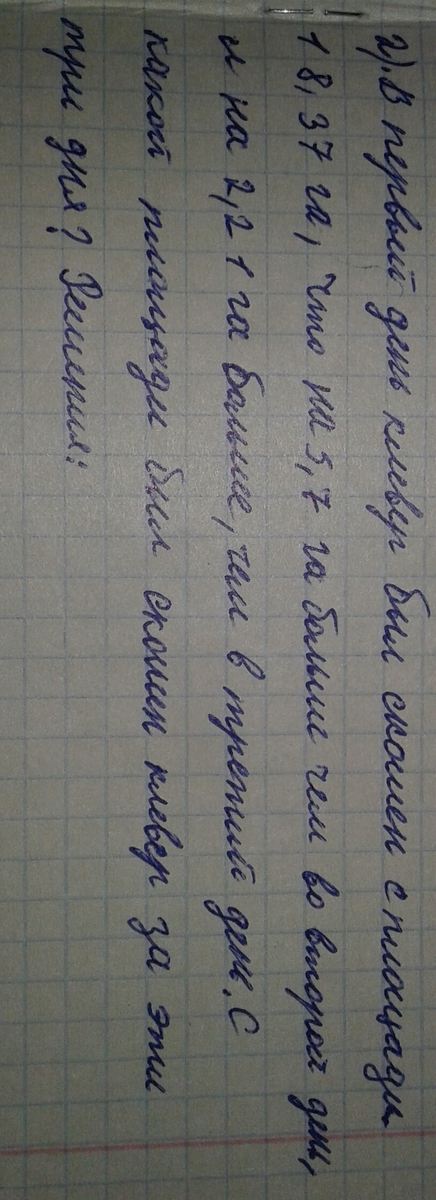 2). В первый день клевер был скошен с площади
18,37 га, что на 5,7 га больше чем во второй день,
и на 2,21 га больше, чем в третий день. С
какой площади был скошен клевер за эти
три дня? Решения: